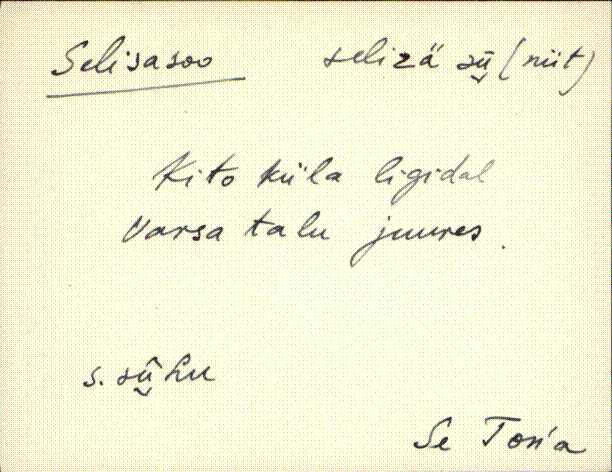 Selisasoo selizä sū̬ (niit)
Kito küla ligidal
Varsa talu juures.
s. sū̬hu
Se Tori'a